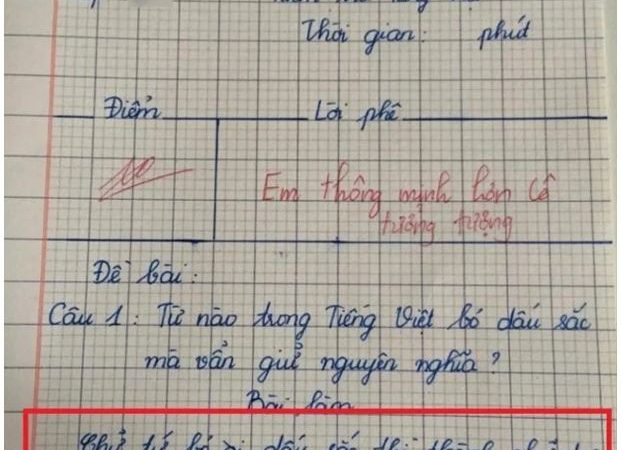 Thời gian: phút
Điểm
Lời phê
10
Em thông minh hơn Cô
tưởng tượng
Đề bài:
Câu 1: Từ nào trong Tiếng Việt bỏ dấu sắc
mà vẩn giử nguyên nghĩa?
Bài làm
dấu sắc thì